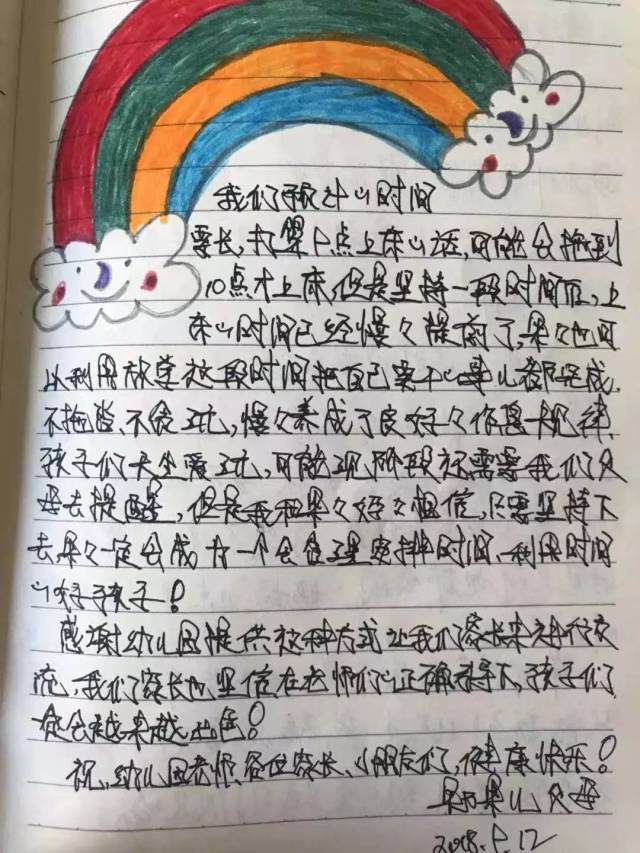 我们预计的时间
要长,打算8点上床的话,可能会拖到
10点才上床,但是坚持一段时间后,上
床的时间已经慢々提前了,果々也可
以利用放学这段时间把自己要干的事儿都完成,
不拖沓、不贪玩,慢々养成了良好的作息规律,
孩子们天生爱玩,可能现阶段还需要我们父
母去提醒,但是我和果々妈々相信,只要坚持下
去,果々一定会成为一个会合理安排时间、利用时间
的好孩子!
感谢幼儿园提供这种方式让我们家长来进行交
流,我们家长也坚信在老师们的正确引导下,孩子们
一定会越来越出色!
祝,幼儿园老师、各位家长、小朋友们,健康快乐!
果果的父母
2018.9.12